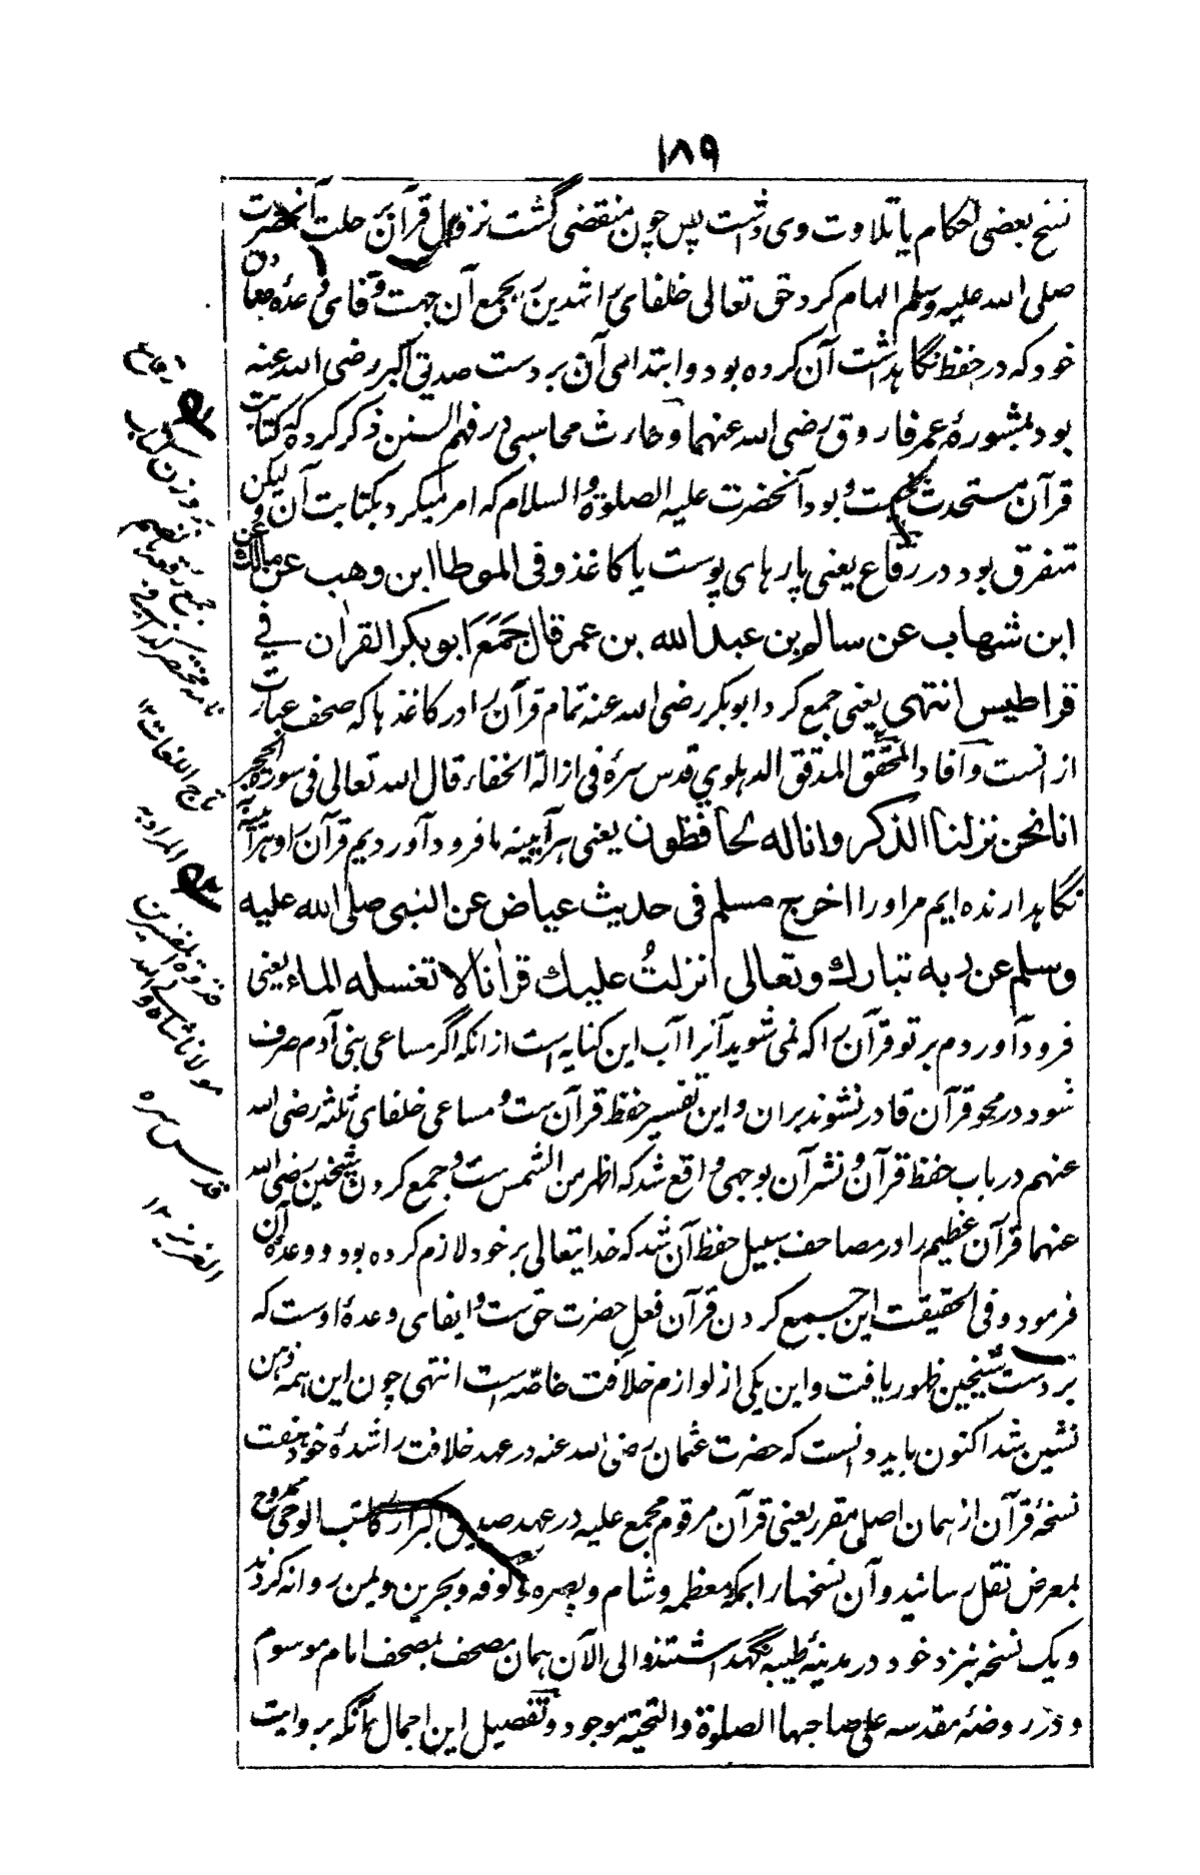 ۱۸۹
نسخ بعضی احکام یا تلاوت وی داشت پس چون منقضی گشت نزول قرآن برحلت آنحضرت
صلی الله علیه وسلم الهام کرد حق تعالی خلفای راشدین را بجمع آن جهت وفای وعدهٔ صادق
خود که در حفظ نگاهداشت آن کرده بود و ابتدای آن بر دست صدیق اکبر رضی الله عنه
بود بمشورهٔ عمر فاروق رضی الله عنهما و حارث محاسبی در فهم السنن ذکر کرد که کتابت
قرآن مستحدث نیست و بود آنحضرت علیه الصلوة والسلام که امر میکرد بکتابت آن ولیکن
متفرق بود در رقاع یعنی پارهای پوست یا کاغذ و فی الموطا ابن وهب عن مالک عن
ابن شهاب عن سالم بن عبد الله بن عمر قال جَمَعَ ابو بکر القراٰن فی
قراطیس انتهی یعنی جمع کرد ابوبکر رضی الله عنه تمام قرآن را در کاغذها که صحف عبارت
ازانست و آفاد المحقق المدقق الدهلوی قدس سرهٔ فی ازالة الخفاء قال الله تعالی فی سورة الحجر
انا نحن نزلنا الذکر وانا له لحافظون یعنی هرآیینه ما فرود آوردیم قرآن را و هرآیینه
نگاهدارنده ایم مراورا اخرج مسلم فی حدیث عیاض عن النبی صلی الله علیه
وسلم عن ربه تبارک وتعالی انزلتُ علیک قراٰنا لا تغسله الماء یعنی
فرود آوردم بر تو قرآن را که نمی شوید آنرا آب این کنایه است ازانکه اگر مساعی بنی آدم صرف
شود در محو قرآن قادر نشوند بران و این تفسیر حفظ قرآن ست و مساعی خلفای ثلثه رضی الله
عنهم در باب حفظ قرآن و نشر آن بوجهی واقع شد که اظهر من الشمس ست و جمع کردن شیخین رضی الله
عنهما قرآن عظیم را در مصاحف سبیل حفظ آن شد که خدایتعالی بر خود لازم کرده بود و وعدهٔ آن
فرمود و فی الحقیقت این جمع کردن قرآن فعلِ حضرت حق ست و ایفای وعدهٔ اوست که
بر دست شیخین ظهور یافت و این یکی از لوازم خلافت خاصّه است انتهی چون این همه ذهن
نشین شد اکنون باید دانست که حضرت عثمان رضی الله عنه در عهد خلافت راشدهٔ خود هفت
نسخهٔ قرآن از همان اصلی مقرر یعنی قرآن مرقوم مجمع علیه در عهد صدیق اکبر از کاتب الوحی ممدوح
بمعرض نقل رسانید و آن نسخها را بمکهٔ معظمه و شام و بصره و کوفه و بحرین و یمن روانه کردند
و یک نسخه بنزد خود در مدینهٔ طیبه نگهداشتند و الی الآن همان مصحف بمصحف امام موسوم
و در روضهٔ مقدسه علی صاحبها الصلوة والتحیة موجود و تفصیل این اجمال آنکه بروایت
رقاع
بر وزن کتاب
جمع رقعه بالضم
نامه مختصر کذا فی
تاج اللغات ۱۲
المراد به
قدوة المفسرین
مولانا شاه ولی الله
قدس سره
العزیز ۱۲